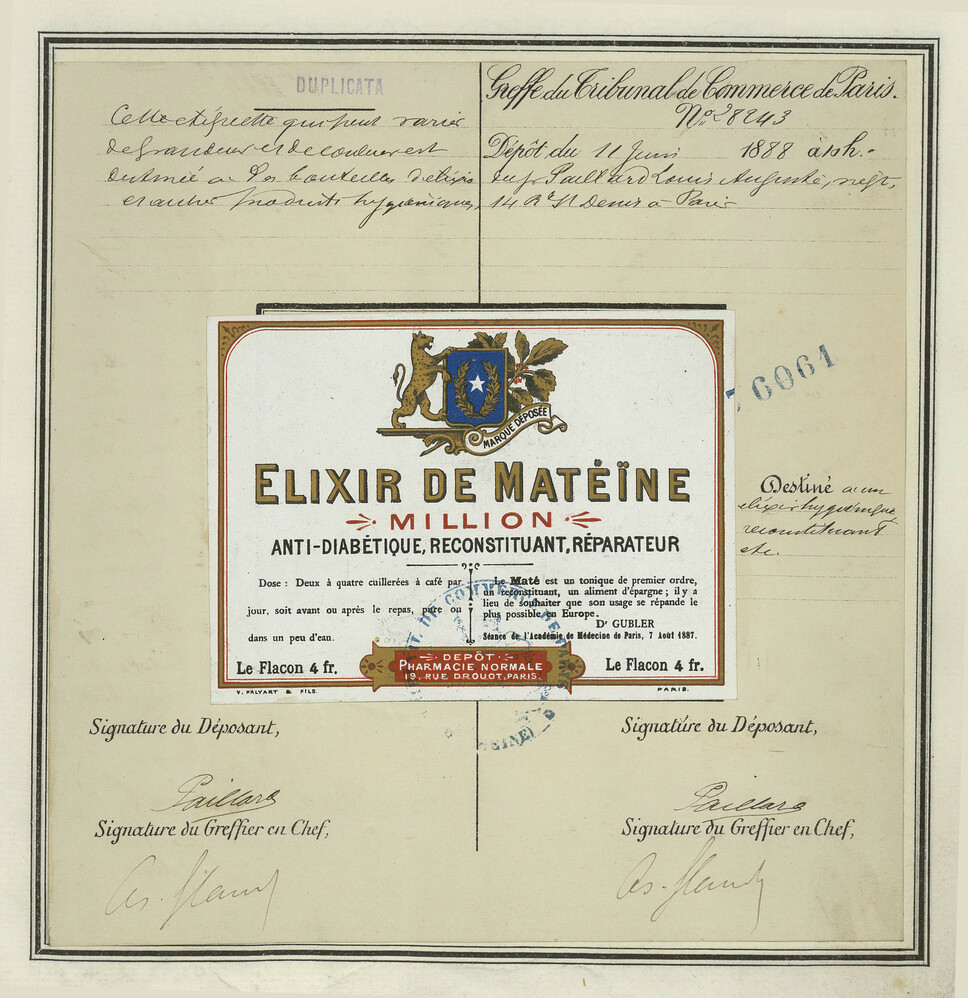 DUPLICATA
Cette étiquette qui peut varier
de grandeur et de couleur est
destinée à des bouteilles d'elixir
et autres produits hygieniques,
Greffe du Tribunal de Commerce de Paris.
No 28243
Dépôt du 11 Juin 1888 à 10h.-
Paillard Louis Auguste, negt,
14 Rue St Denis à Paris
76061
MARQUE DÉPOSÉE
ELIXIR DE MATÉÏNE
MILLION
ANTI-DIABÉTIQUE, RECONSTITUANT, RÉPARATEUR
Dose : Deux à quatre cuillerées à café par
jour, soit avant ou après le repas, pure ou
dans un peu d'eau.
Le Flacon 4 fr.
Le Maté est un tonique de premier ordre,
un reconstituant, un aliment d'épargne ; il y a
lieu de souhaiter que son usage se répande le
plus possible en Europe.
Dr GUBLER
Séance de l'Académie de Médecine de Paris, 7 Août 1887.
Le Flacon 4 fr.
DEPÔT
PHARMACIE NORMALE
19, RUE DROUOT, PARIS.
V. PALYART & FILS.
PARIS.
Destiné à un
elixir hygiénique
reconstituant
etc.
COMMERCE
(SEINE)
Signature du Déposant,
Paillard
Signature du Greffier en Chef,
Signature du Déposant,
Paillard
Signature du Greffier en Chef,